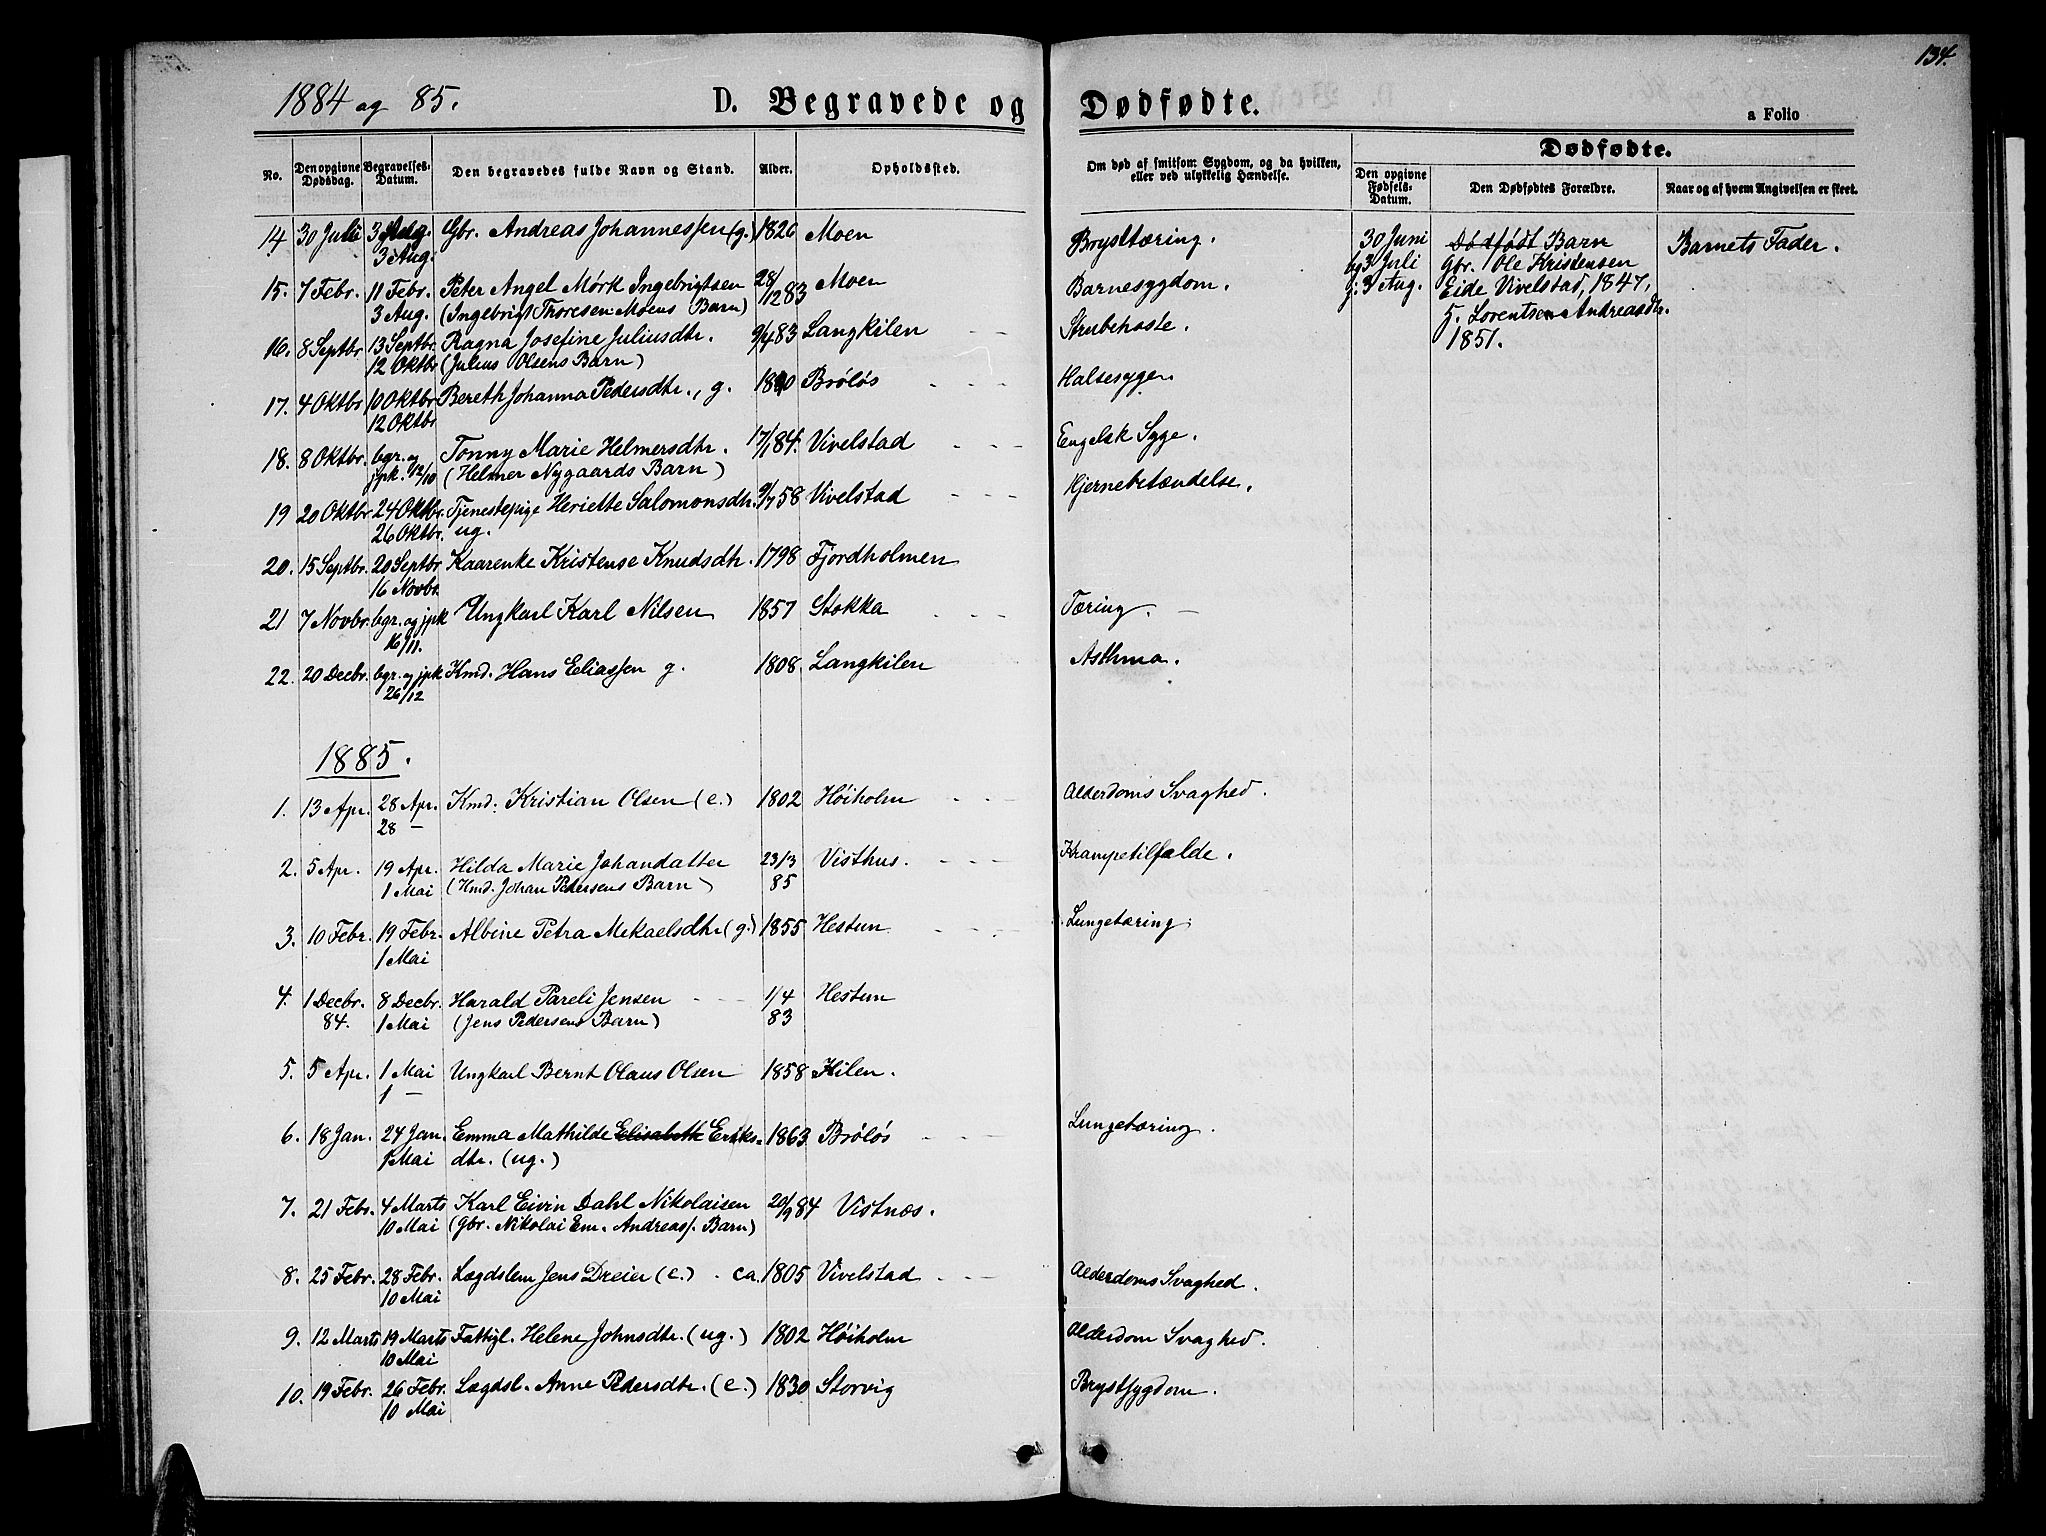 134.
1884 og 85. D. Begravede og Dødfødte. a Folio
No. Den opgivne Dødsdag. Begravelses-Datum. Den begravedes fulde Navn og Stand. Alder. Opholdssted. Om død af smitsom Sygdom, og da hvilken, eller ved ulykkelig Hændelse. Dødfødte.
Den opgivne Fødsels-Datum. Den Dødfødtes Forældre. Naar og af hvem Angivelsen er skeet.
14 30 Juli 3 Aug. Gbr. Andreas Johannessen (g.) 1826 Moen Brysttæring. 30 Juni Dødfødt Barn Barnets Fader.
3 Aug. bg 3 Juli Gbr. Ole Kristensen
15. 7 Febr. 11 Febr. Peter Angel Mørk Ingebrigtsen 28/12 83 Moen Barnesygdom. j. 3 Aug. Eide Vivelstad, 1847,
3 Aug. (Ingebrigt Thoresen Moens Barn) Lorentse Andreasdtr.
16. 8 Septbr 13 Septbr. Ragna Josefine Juliusdtr. 9/4 83 Langkilen Strubehoste. 1851.
12 Oktbr (Julius Olsens Barn)
17. 4 Oktbr 10 Oktbr Bereth Johanna Pedersdtr., g. Brøløs Halsesyge.
12 Oktbr
18. 8 Oktbr. bgr. og Tonny Marie Helmersdtr. 17/1 84. Vivelstad Engelsk Syge.
jpk. 12/10 (Helmer Nygaards Barn)
19 20 Oktbr. 24 Oktbr. Tjenestepige Heriette Salomonsdtr. 9/7 58 Vivelstad Hjernebetændelse.
26 Oktbr. ug.
20. 15 Septbr. 20 Septbr Kaarenke Kristense Knudsdtr. 1798 Fjordholmen
16 Novbr.
21 7 Novbr. bgr. og jpk Ungkarl Karl Nilsen 1857 Stokka Tæring.
16/11.
22. 20 Decbr. bgr. og jpk Kmd. Hans Eliassen g. 1808. Langkilen Asthma.
26/12
1885.
1. 13 Apr. 28 Apr. Kmd. Kristian Olsen (e.) 1802 Høiholm Alderdoms Svaghed.
28 —
2. 5 Apr. 19 Apr. Hilda Marie Johandatter 23/3 Visthus. Krampetilfælde.
1 Mai (Kmd. Johan Pedersens Barn) 85
3. 10 Febr. 19 Febr. Albine Petra Mekaelsdtr (g.) 1855 Hestun Lungetæring
1 Mai
4. 1 Decbr. 8 Decbr. Harald Pareli Jensen 1/4 Hestun
84. 1 Mai (Jens Pedersens Barn) 83
5. 5 Apr. 1 Mai Ungkarl Bernt Olaus Olsen 1858 Kilen.
1 —
6. 18 Jan. 24 Jan. Emma Mathilde Elisabeth Eriks- 1863 Brøløs Lungetæring.
1 Mai dtr. (ug.)
7. 21 Febr. 4 Marts Karl Eivin Dahl Nikolaisen 20/9 84 Vistnæs.
10 Mai (Gbr. Nikolai Em. Andreass. Barn)
8. 25 Febr. 28 Febr. Lægdslem Jens Dreier (e.) ca. 1805 Vivelstad Alderdoms Svaghed.
10 Mai
9. 12 Marts 19 Marts Fattigl. Helene Johnsdtr. (ug.) 1802 Høiholm Alderdom Svaghed.
10 Mai
10. 19 Febr. 26 Febr. Lægdsl. Anne Pedersdtr. (e.) 1830 Storvig Brystsygdom.
10 Mai